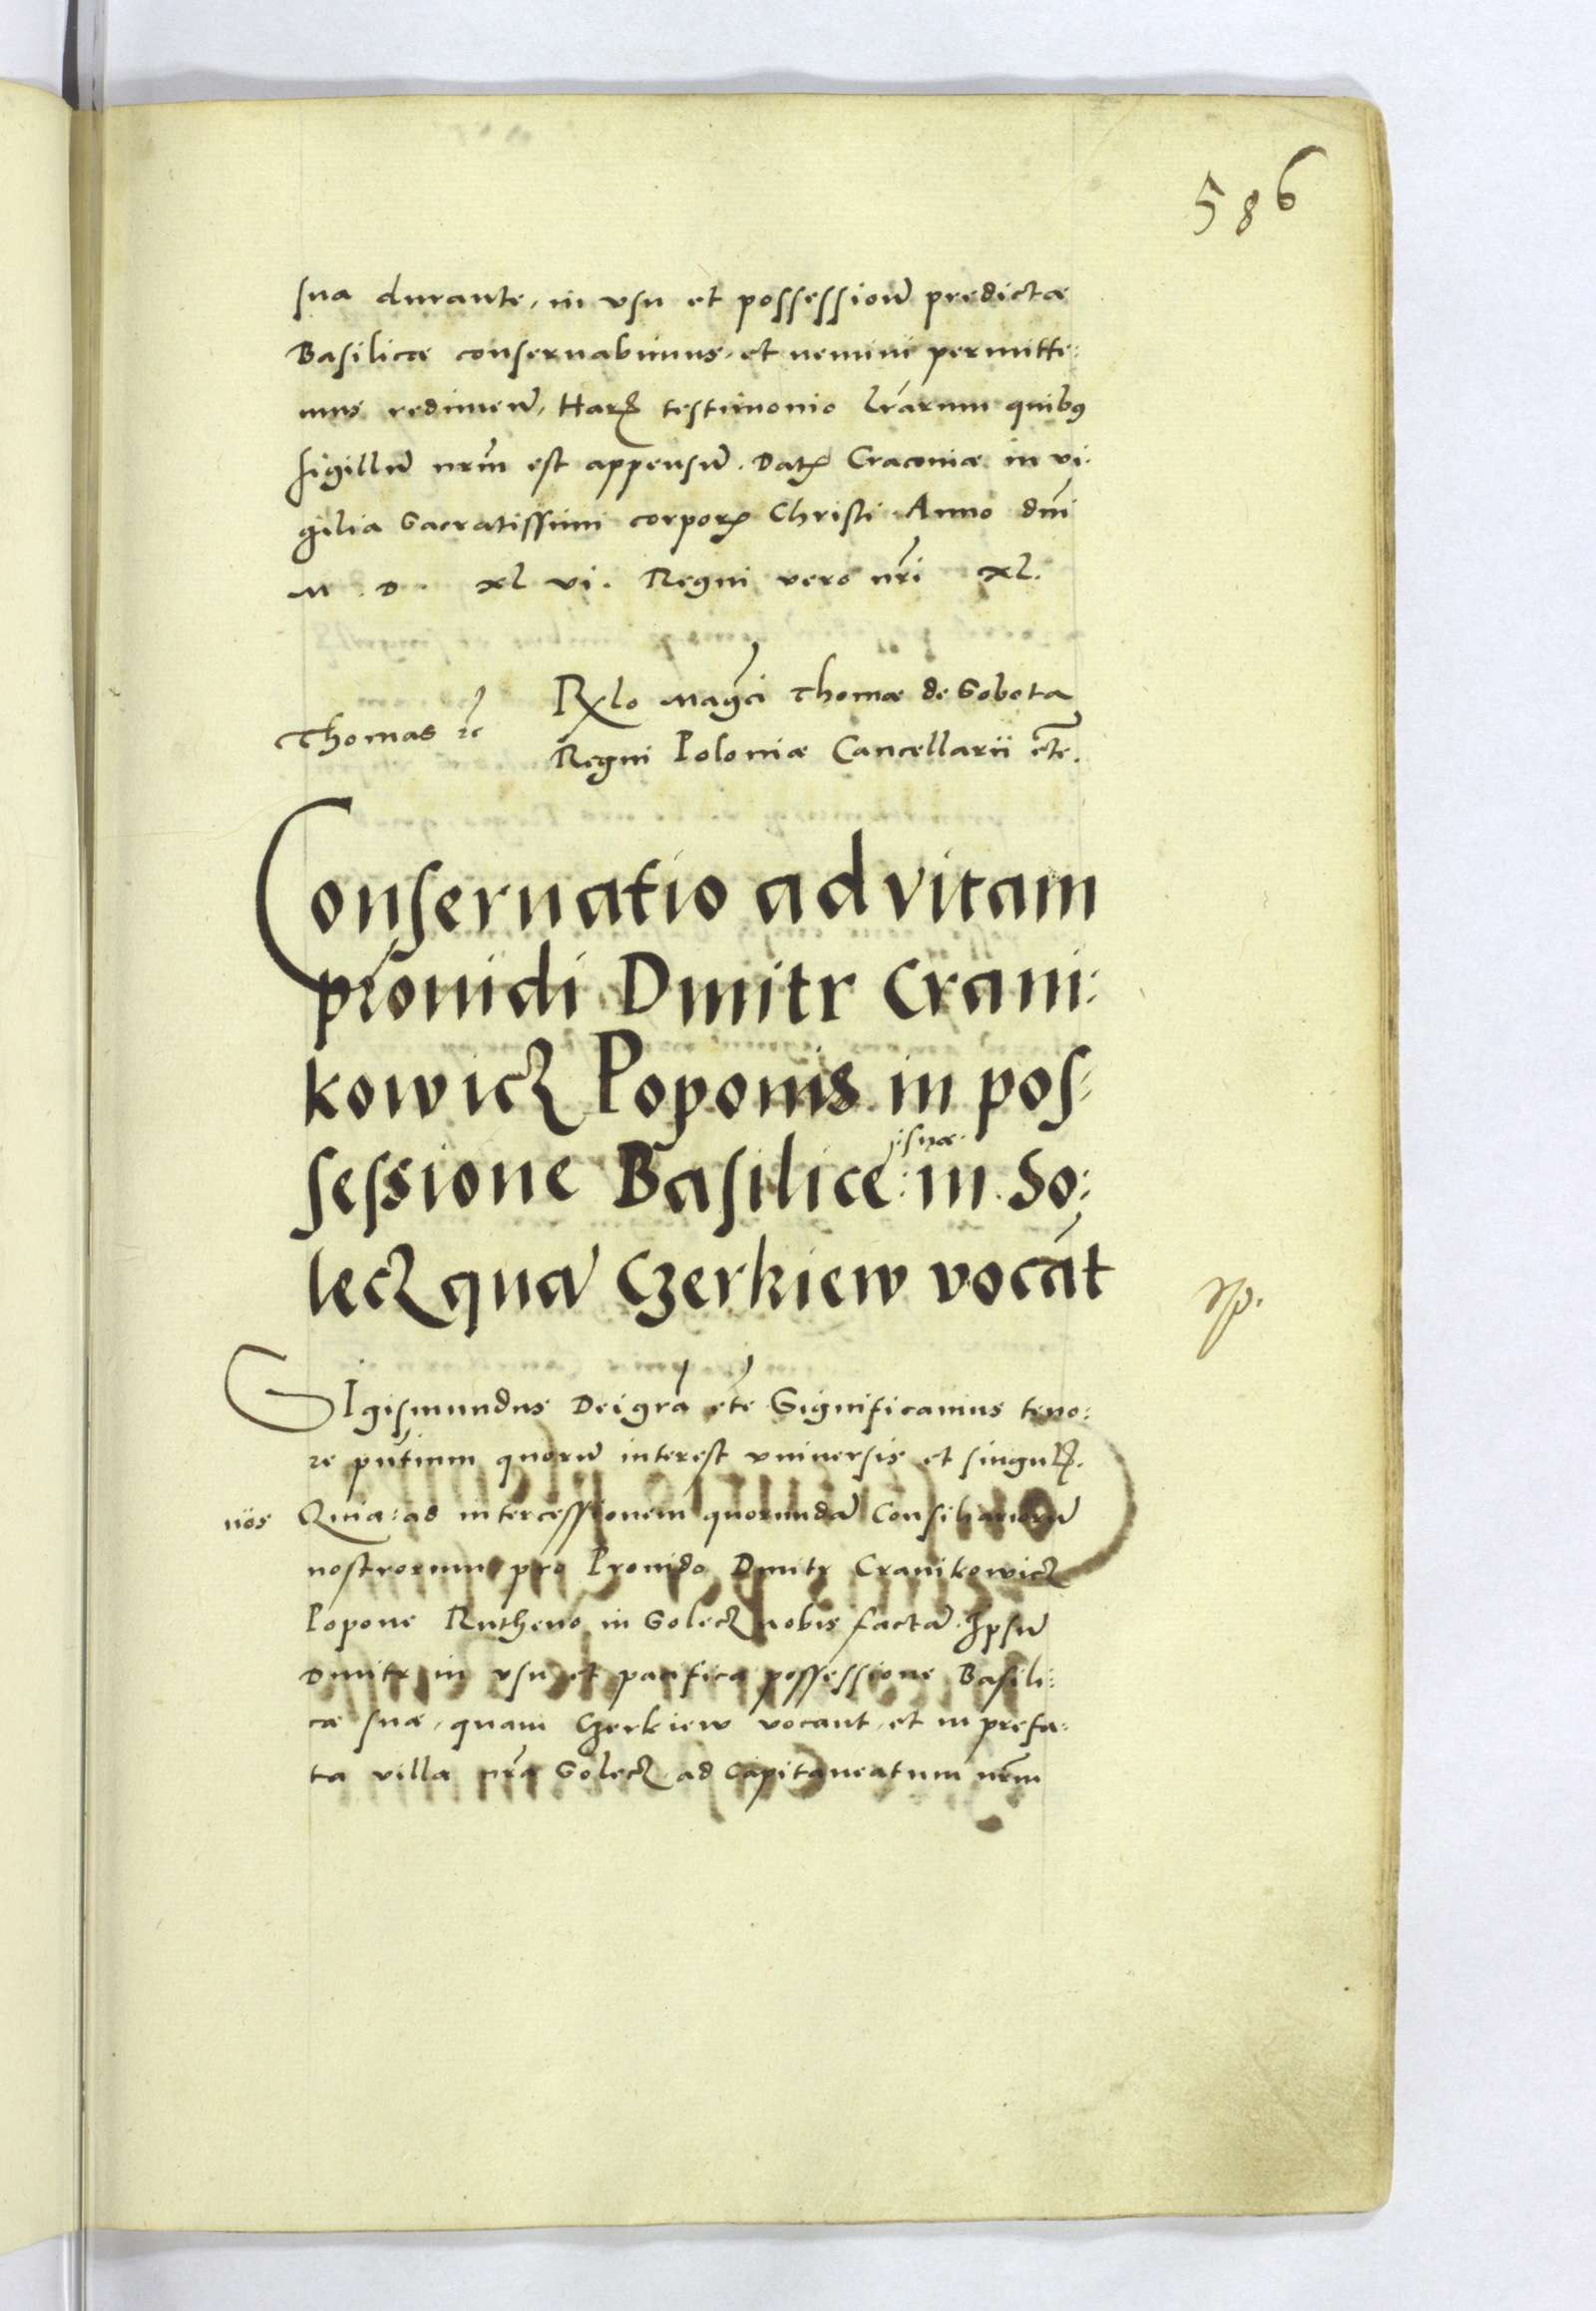 586
sua durante, in vsu et possessiõe predictæ
Basilicæ conseruabimus, et nemini permitte:
mus redimere, Harũ testimonio lr̃arum quibꝰ
sigillũ nrm̃ est appensũ. Datꝭ Cracouiæ in vi:
gilia Sacratissimi corporꝭ Christi Anno dni
M. D. xl vi. Regni vero nri xl.
Rlo Magci Thomæ de Sobota
Thomas etc
Regni Poloniæ Cancellarii etc.
Conseruatio ad vitam
prouidi Dmitr Crani:
kowicz Poponis in pos:
sessione Basilice :suæ: in So:
lecz quã Czerkiew vocãt
SIgismundus Dei gra etc Significamus teno:
re pñtium quorũ interest vniuersis et singulꝭ.
Quia nos ad intercessionem quorundã Consiliariorũ
nostrorum pro Prouido Dmitr Cranikowicz
Popone Rutheno in Solecz nobis factã. Ipsũ
Dmitr in vsu et pacifica possessione Basili:
cæ suæ, quam Czerkiew vocant, et in prefa:
ta villa nra Solecz ad Capitaneatum nrm